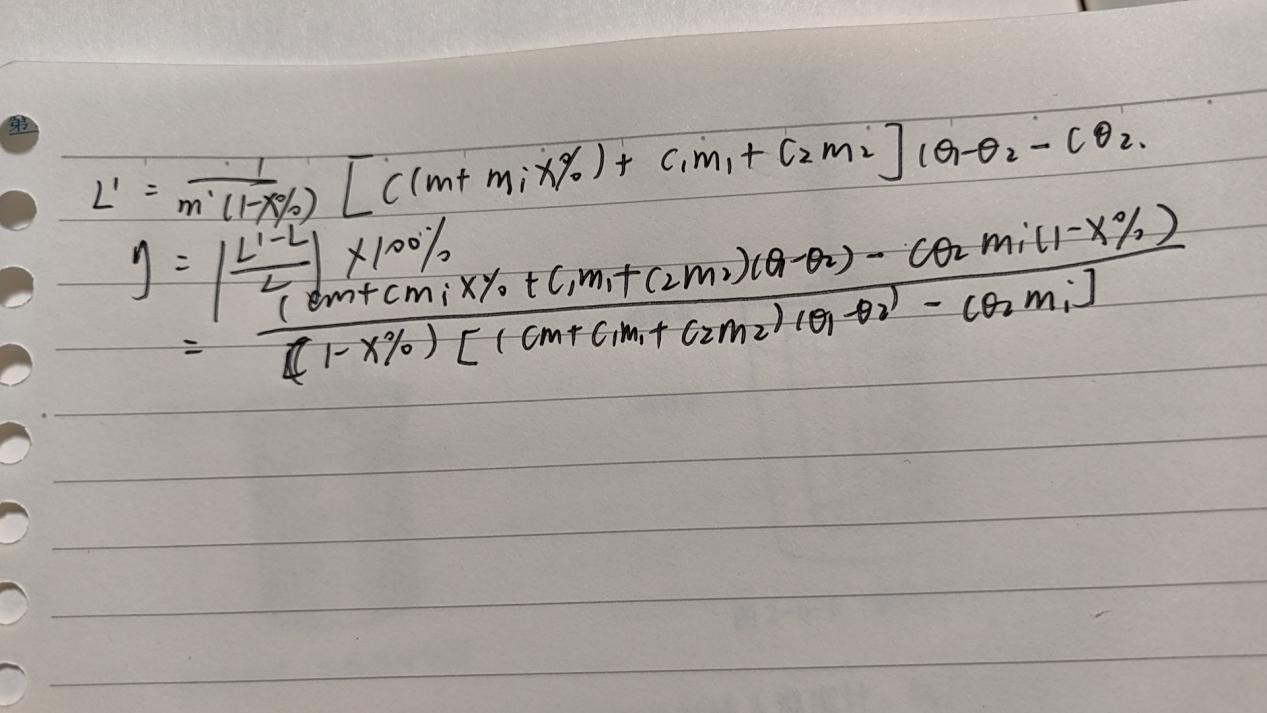 第
L' = 1/(mi(1-X%)) [C(m+ miX%) + C₁m₁ + C₂m₂](θ₁-θ₂ - Cθ₂.
η = |(L'-L)/L| ×100%
= ((cm+cmiX% + C₁m₁+C₂m₂)(θ₁-θ₂) - Cθ₂mi(1-X%))/((1-X%)[(Cm+C₁m₁+C₂m₂)(θ₁-θ₂) - Cθ₂mi])